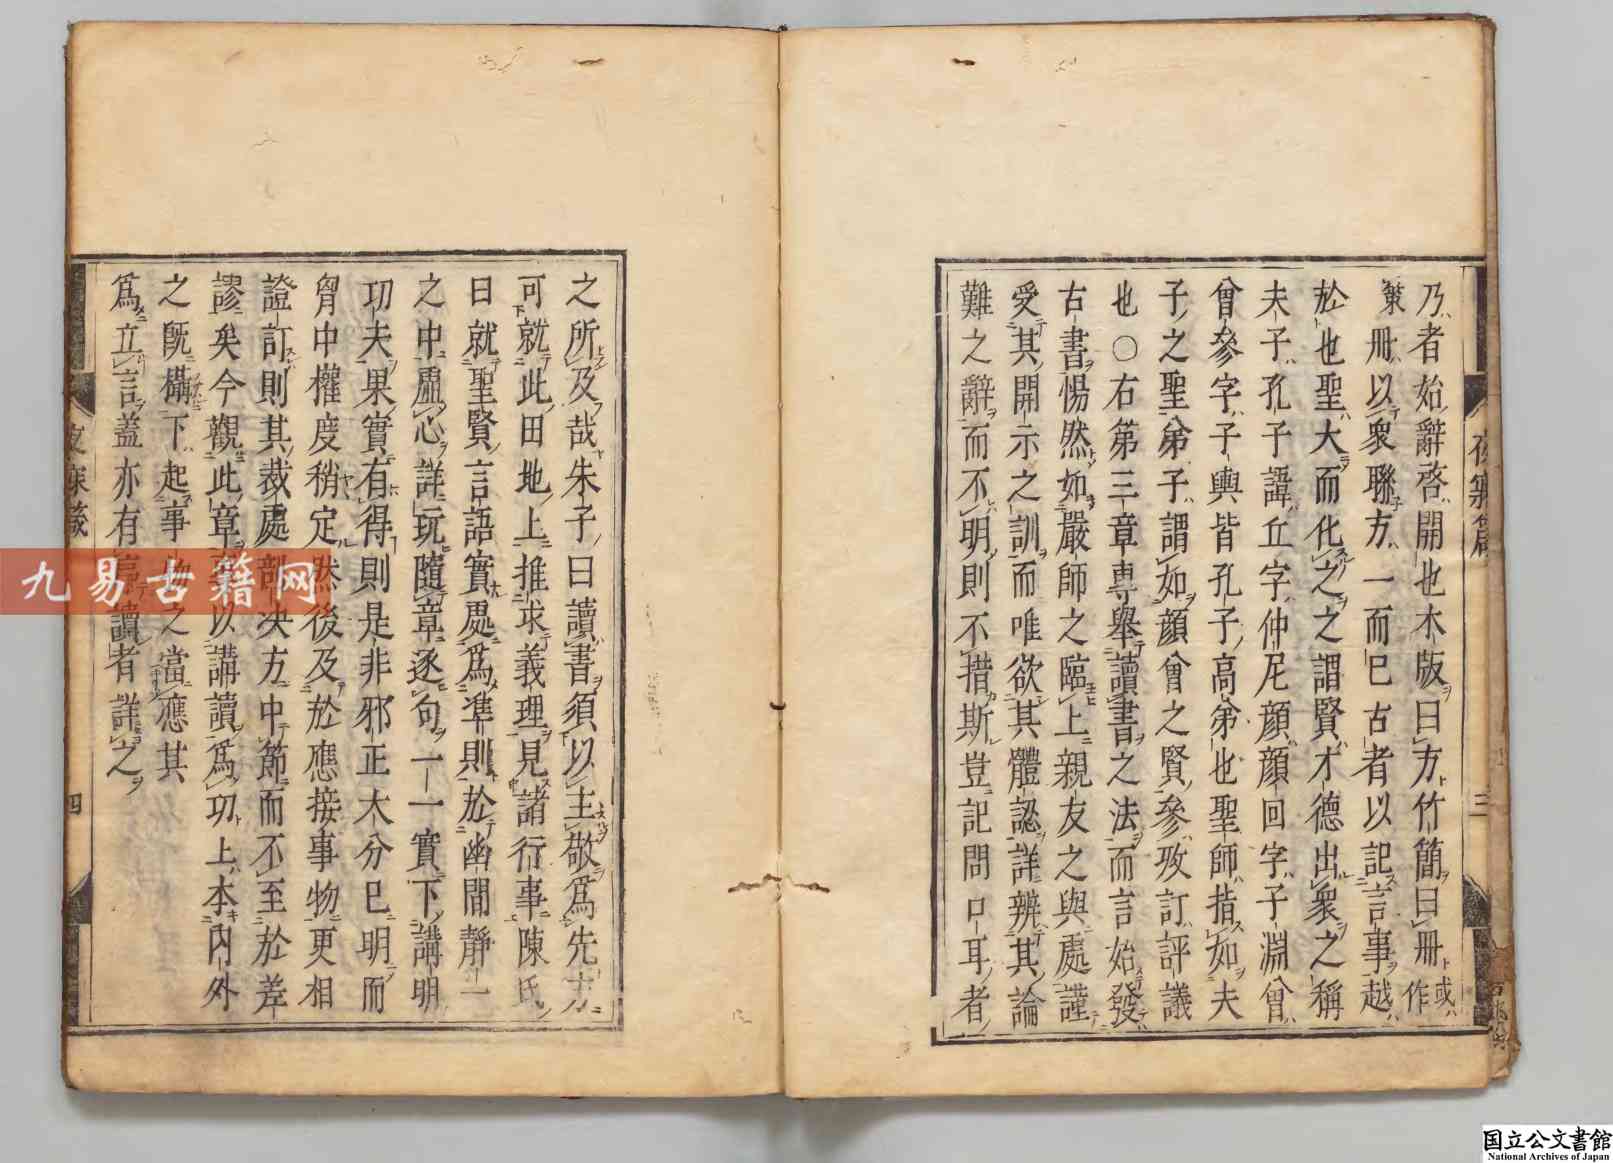 乃者始辭啓開也木版曰方竹簡曰冊或作
策冊以衆聯方一而已古者以記言事越
於也聖大而化之之謂賢才德出衆之稱
夫子孔子諱丘字仲尼顏顏回字子淵曾
曾參字子輿皆孔子高弟也聖師指如夫
子之聖弟子謂如顏曾之賢參攷訂評議
也○右第三章專舉讀書之法而言始發
古書惕然如嚴師之臨上親友之與處謹
受其開示之訓而唯欲其體認詳辨其論
難之辭而不明則不措斯豈記問口耳者
三
之所及哉朱子曰讀書須以主敬爲先
可就此田地上推求義理見諸行事陳氏
曰就聖賢言語實處爲準則於幽間靜一
之中虛心詳玩隨章逐句一一實下講明
功夫果實有得則是非邪正大分已明而
胷中權度稍定然後及於應接事物更相
證訂則其裁處剖決方中節而不至於差
謬矣今觀此章以講讀爲功上本內外
之旣構下起事物之當應其
爲立言蓋亦有讀者詳之
四
九易古籍网
国立公文書館
National Archives of Japan